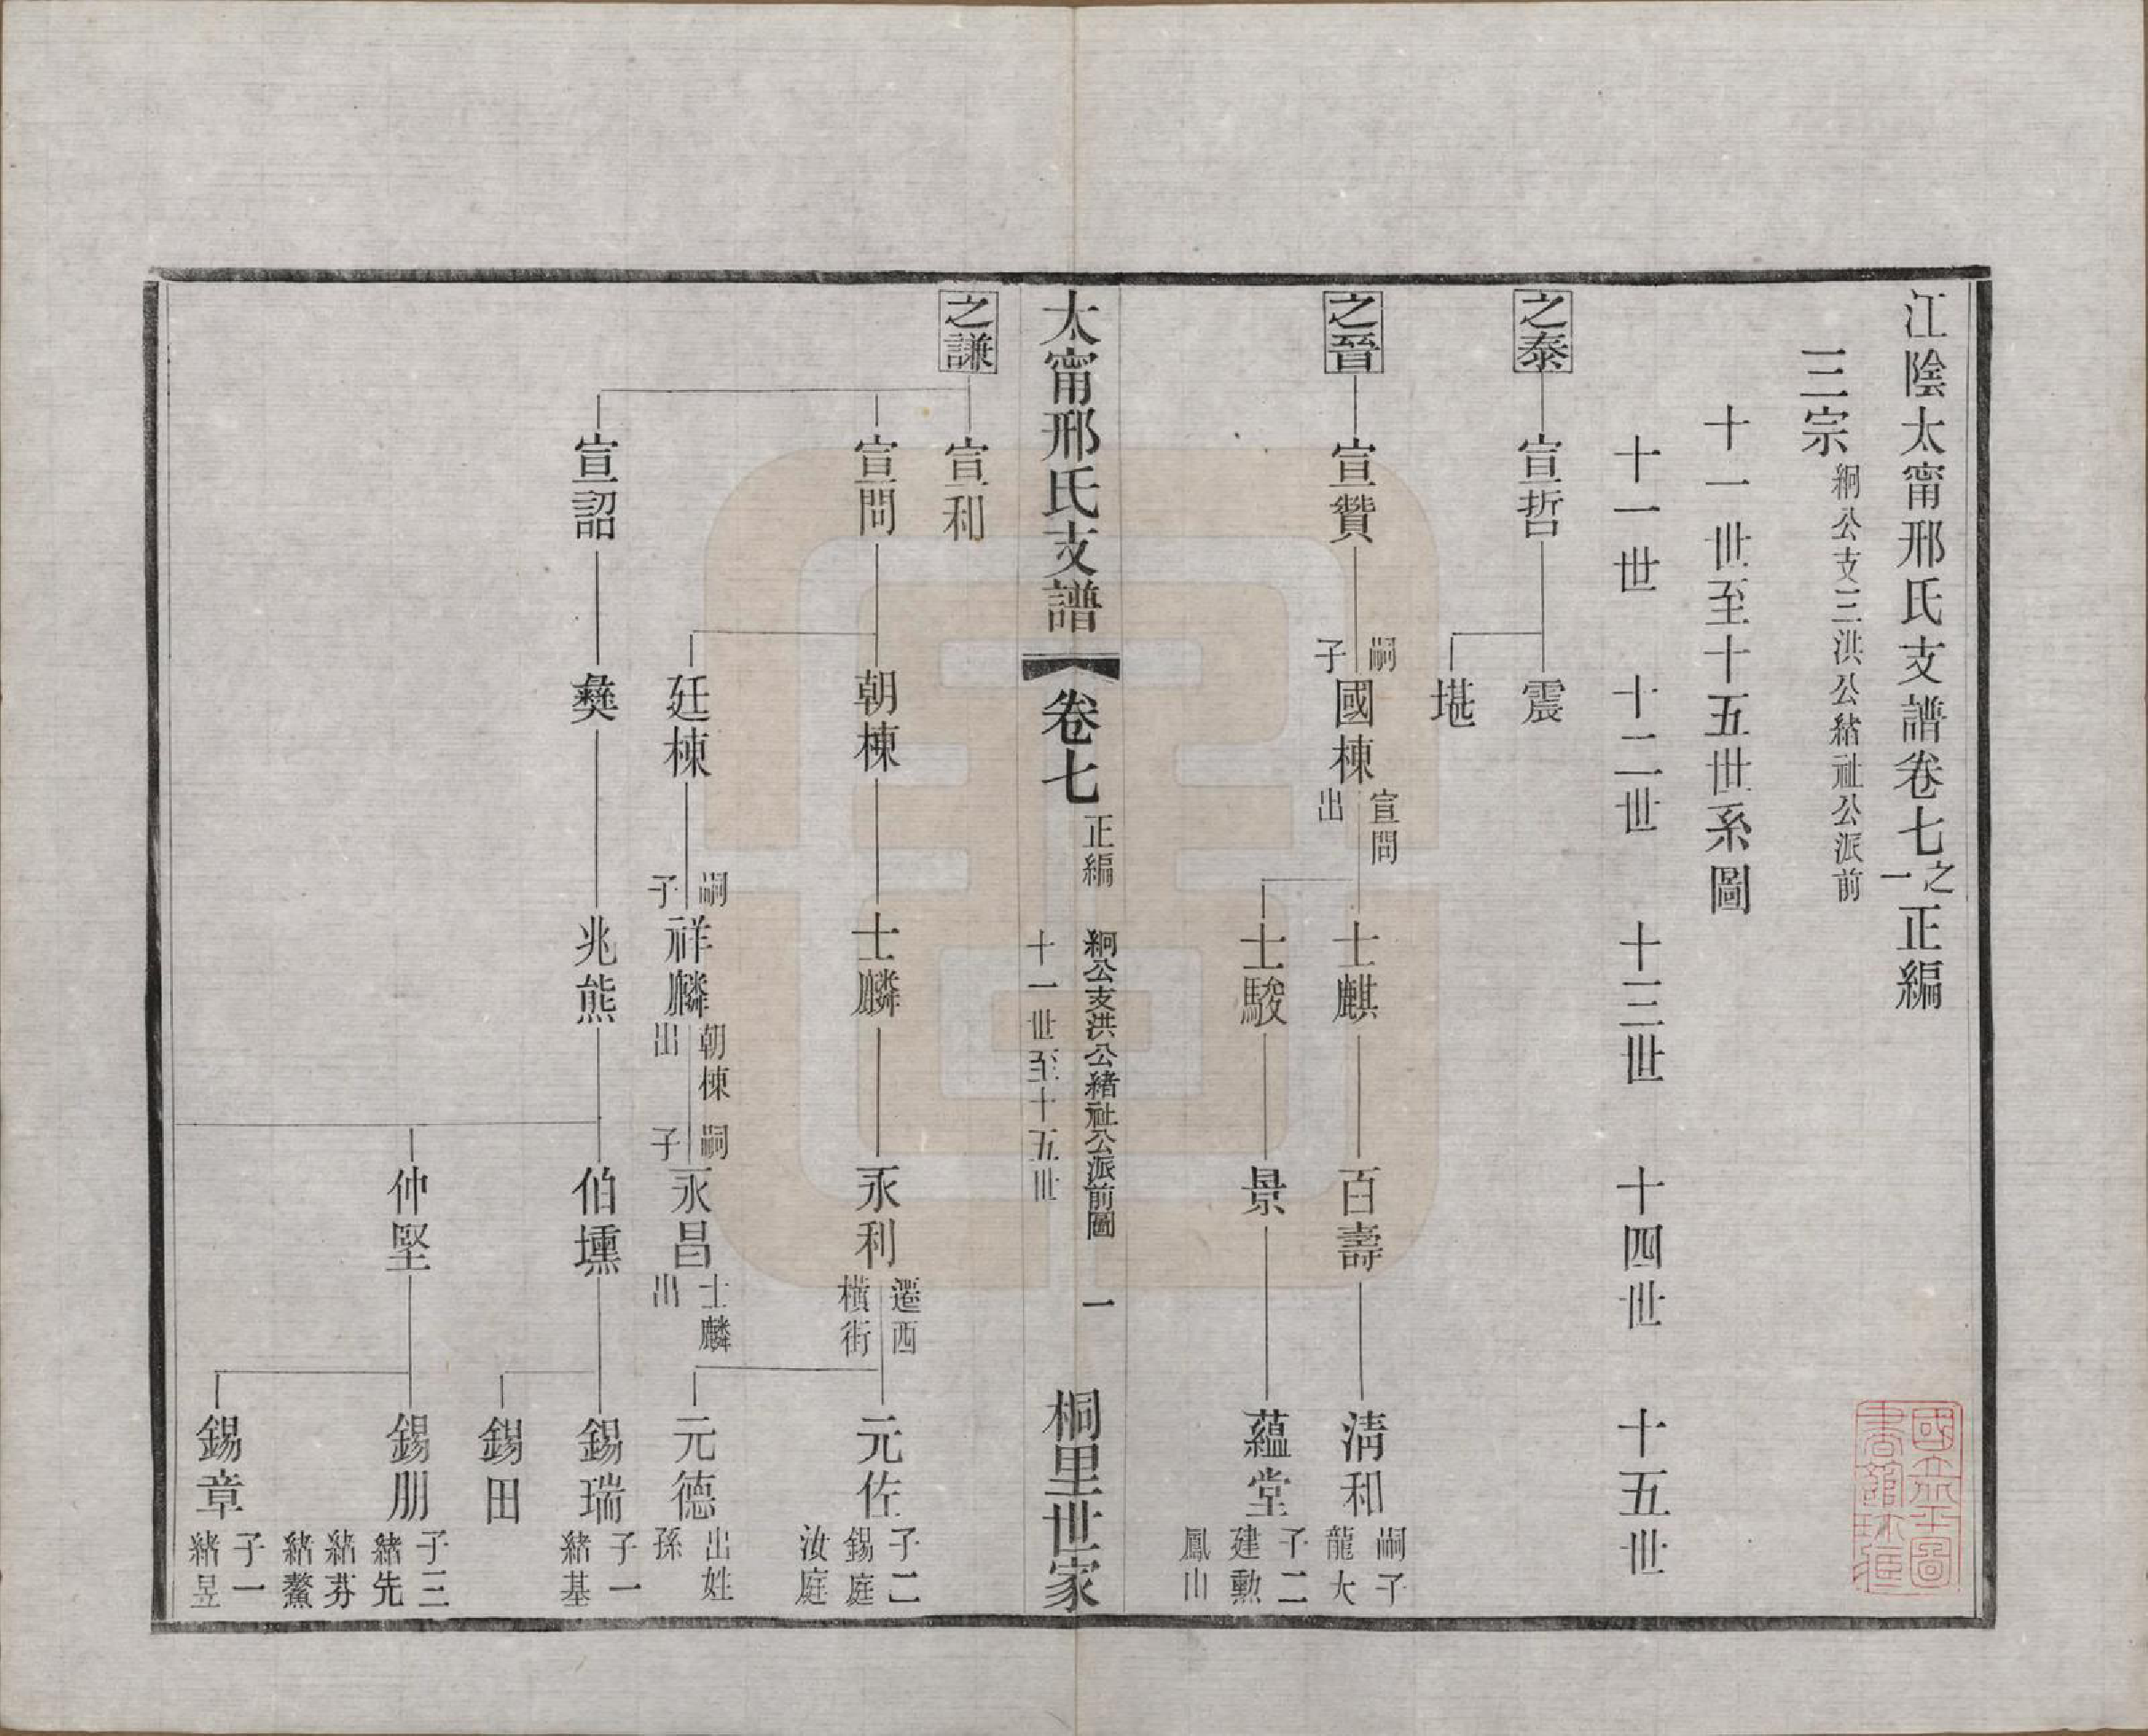 江陰太甯邢氏支譜卷七之一正編
三宗 絅公支三洪公緒祉公派前
十一世至十五世系圖
十一世 十二世 十三世 十四世 十五世
之泰 宣哲 震
堪
之晉 宣贊 嗣子 國棟 宣問出 士麒 百壽 清和 嗣子龍大
士駿 景 蘊堂 子二 建勳 鳳山
太甯邢氏支譜 卷七 正編 絅公支洪公緒祉公派前圖 十一世至十五世 一 桐里世家
之謙 宣利
宣問 朝棟 士麟 永利 遷西橫街 元佐 子二 錫庭 汝庭
元德 出姓孫
廷棟 嗣子 祥麟 朝棟出 嗣子 永昌 士麟出
宣詔 彝 兆熊 伯壎 錫瑞 子一 緒基
錫田
仲堅 錫朋 子三 緒先 緒芬 緒鰲
錫章 子一 緒昱
國立北平圖書館珍藏